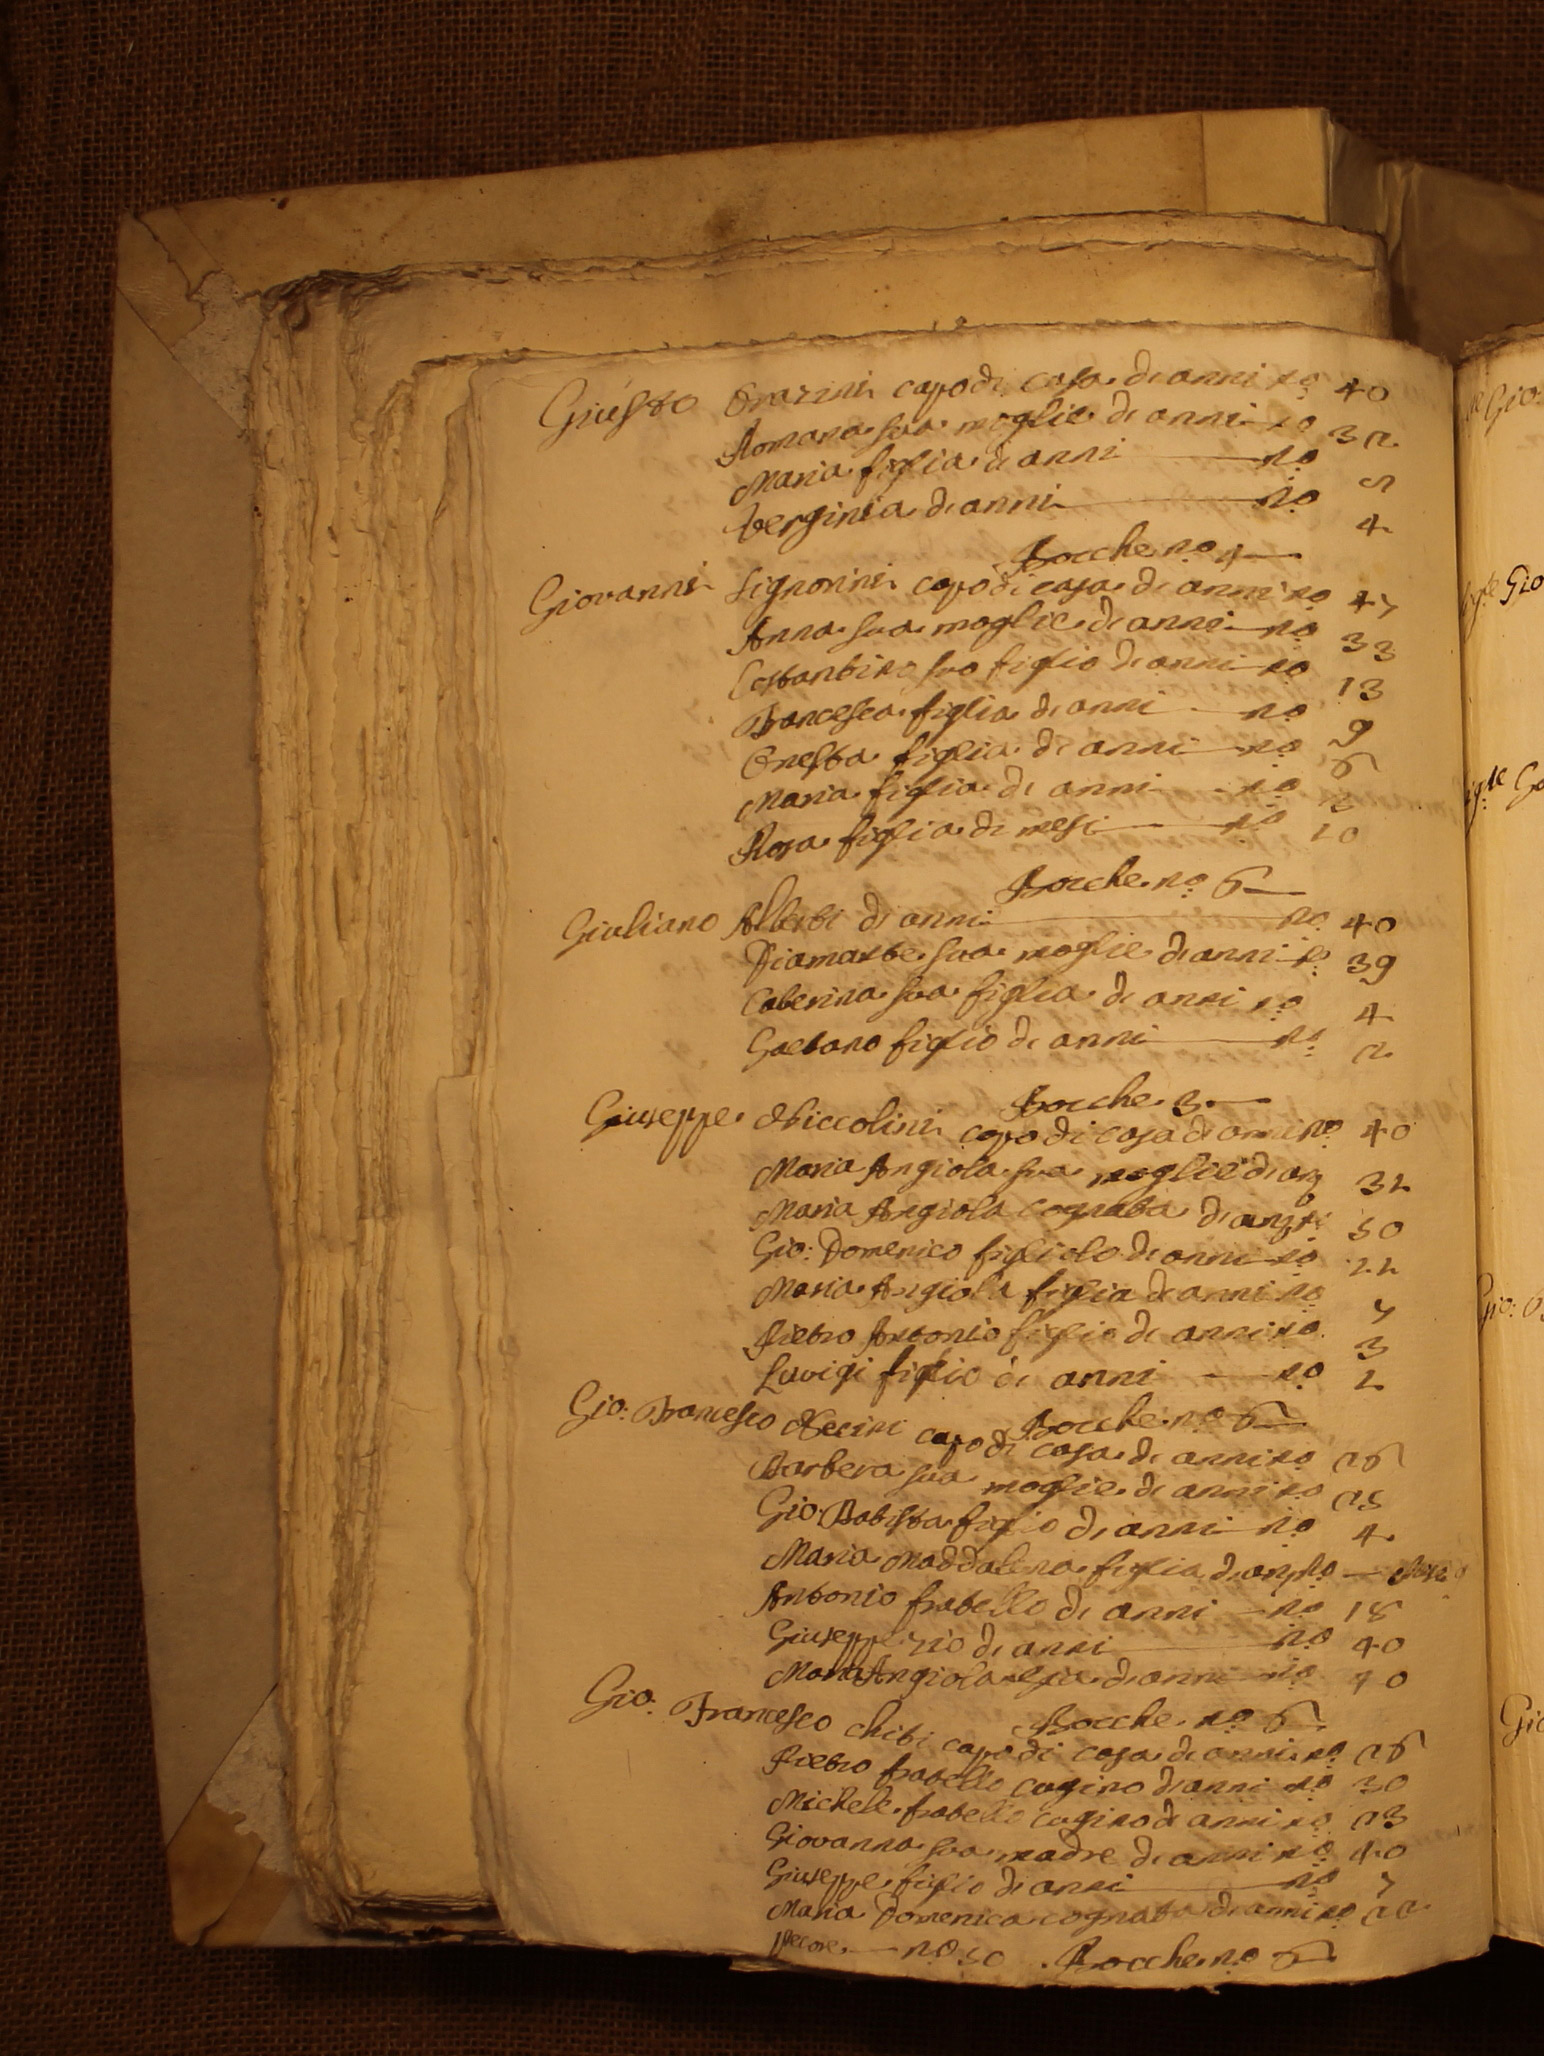 Giusto Orazini capo di casa di anni no 40
Romana sua moglie di anni no 32
Maria figlia di anni no 5
Verginia di anni no 4
Bocche no 4
Giovanni Signorini capo di casa di anni no 47
Anna sua moglie di anni no 33
Costantino suo figlio di anni no 13
Francesca figlia di anni no 9
Onesta figlia di anni no 6
Maria figlia di anni no 3
Rosa figlia di mesi no 10
Bocche no 6
Giuliano Alberti di anni no 40
Diamante sua moglie di anni no 39
Caterina sua figlia di anni no 4
Gaetano figlio di anni no 2
Bocche 3
Giuseppe Niccolini capo di casa di anni no 40
Maria Angiola sua moglie di an 32
Maria Angiola cognata di anni 50
Gio: Domenico figliolo di anni no 22
Maria Angiola figlia di anni no 7
Pietro Antonio figlio di anni no 3
Luvigi figlio di anni no 2
Bocche no 6
Gio: Francesco Neccini capo di casa di anni no 26
Barbera sua moglie di anni no 25
Gio: Batista figlio di anni no 4
Maria Maddalena figlia di an no
Antonio fratello di anni no 18
Giuseppe zio di anni no 40
Maria Angiola zia di anni no 40
Bocche no 6
Gio: Francesco Chiti capo di casa di anni no 26
Pietro fratello cugino di anni no 30
Michele fratello cugino di anni no 23
Giovanna sua madre di anni no 40
Giuseppe figlio di anni no 7
Maria Domenica cognata di anni no 22
Pecore no 50 Bocche no 6
Gio:
Gio
Gio: